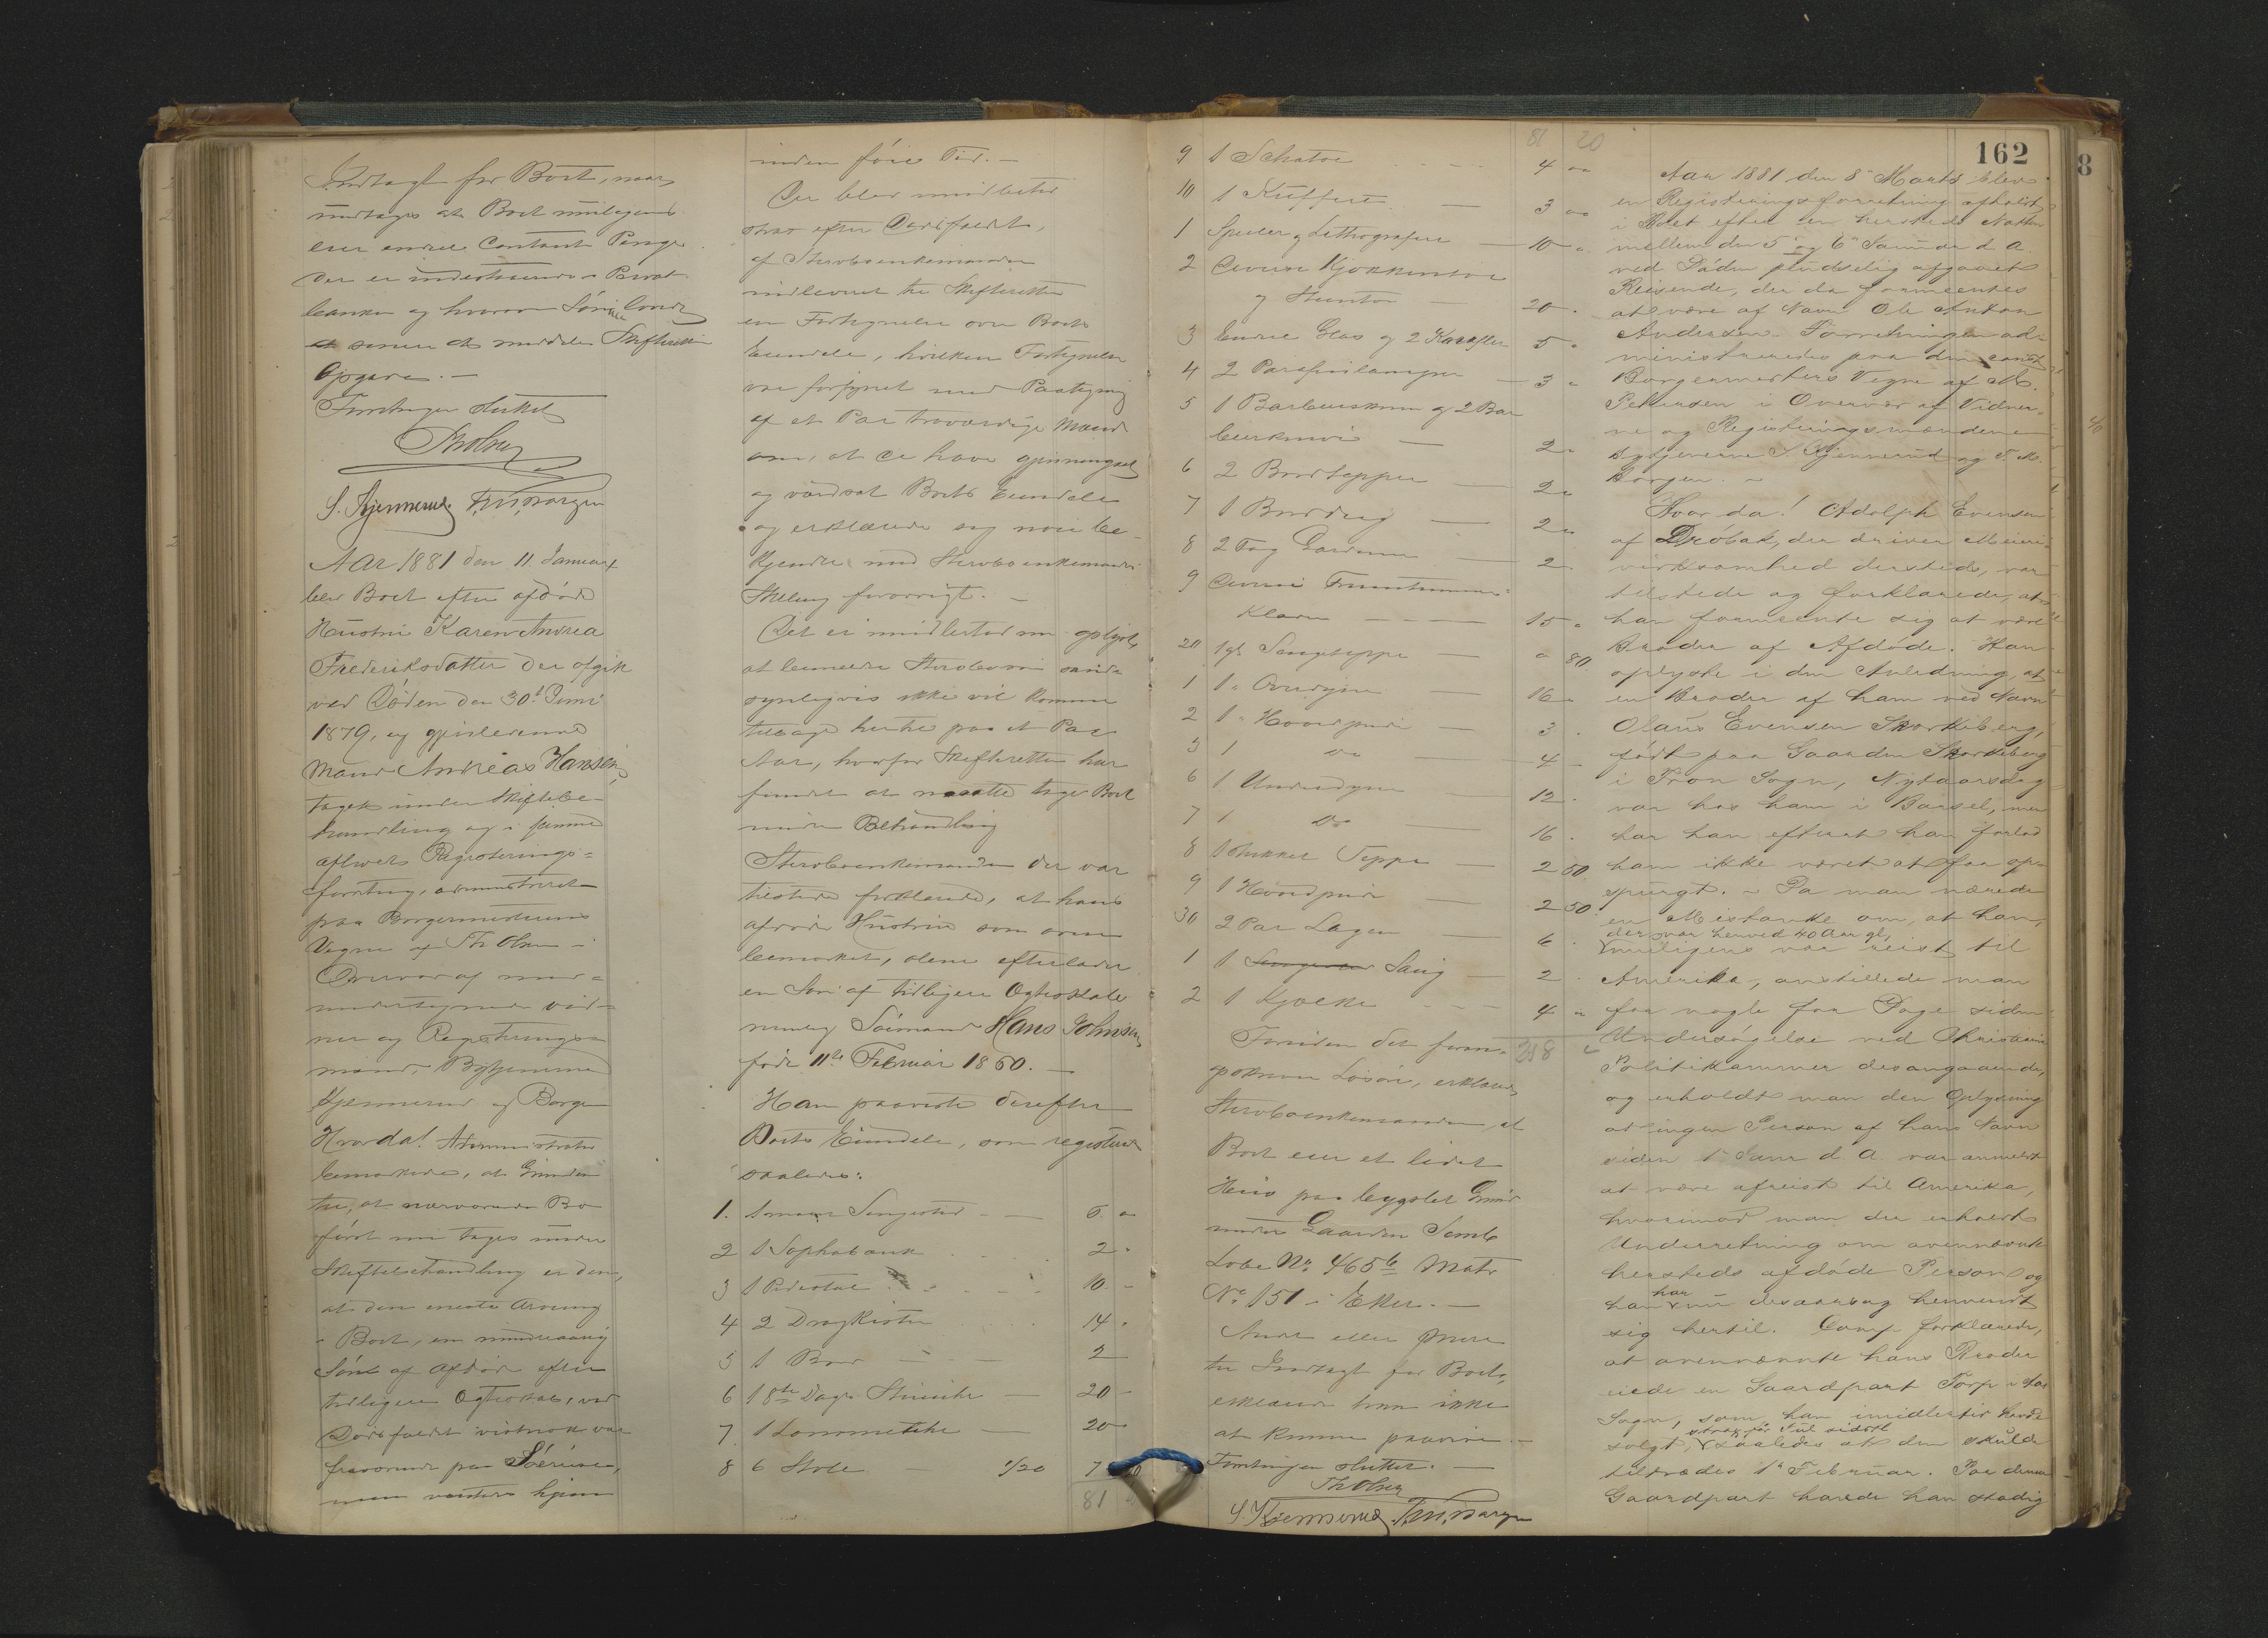 Indtægt for Boet, naar
undtages at Boet muligens
eier endel Contante Penge
der er indestaaende i Privat
banken og hvorom Sønnen
senere at meddele Skifteretten
Opgave. —
Forretningen sluttet
ThOlsen
S. Kjennerud Fr. M. Borgen
Aar 1881 den 11. Januar
blev Boet efter afdøde
Hustru Karen Andrea
Frederiksdatter der afgik
ved Døden den 30te Juni
1879, og gjenlevende
Mand Andreas Hansen,
taget under Skiftebe-
handling og i samme
afholdt Registrerings-
forretning, administreret
paa Borgermesterens
Vegne af Th Olsen i
Overvær af med-
undertegnede Vid-
ner og Registrerings-
mænd, Bytjenerne
Kjennerud og Borgen
Hvorda! Administrator
bemærkede, at Grunden
til, at nærværende Bo
først nu tages under
Skiftebehandling er den,
at den eneste Arving
i Boet, en mindreaarig
Søn af Afdøde efter
tidligere Ægteskab, ved
Dødsfaldet vistnok var
fraværende paa Søreise,
men ventes hjem
inden føie Tid. —
Der blev imidlertid
strax efter Dødsfaldet,
af Stervboenkemanden
indleveret til Skifteretten
en Fortegnelse over Boets
Eiendele, hvilken Fortegnelse
var forsynet med Paategning
af et Par troværdige Mænd
om, at de have gjennemgaaet
og vurderet Boets Eiendele
og erklærede sig noie be-
kjendte med Stervboenkemandens
Stilling forøvrigt. —
Det er imidlertid nu oplyst,
at bemeldte Stervbo sand-
synligvis ikke vil komme
tilbage hertil paa et Par
Aar, hvorfor Skifteretten har
fundet at maatte tage Boet
under Behandling
Stervboenkemanden der var
tilstede forklarede, at hans
afdøde Hustru som oven
bemærket, alene efterlader
en Søn af tidligere Ægteskab
nemlig Sømand Hans Johnsen,
født 11te Februar 1860. —
Han paaviste derefter
Boets Eiendele, som registreredes
saaledes:
1. 1 Sengested — 6. "
2 1 Sophabænk 2 "
3 1 Pidestal 10. –
4 2 Dragkister 14 "
5 1 Bord — 2
6 1 8te Dags Stueuhr — 20 –
7. 1 Lommeuhr — 20
8 6 Stole — 1/20 7 20
81 20
81 20
9 1 Schatol 4 "
10 1 Kuffert — 3 "
1 Speile og Lithografier — 10 "
2 Diverse Kjøkkentøi
og Stentøi — 20 "
3 Endel Glas og 2 Karafler 5 "
4 2 Parafinlamper — 3 "
5 1 Barbeerskrin og 2 Bar
beerknive — 2 "
6 2 Bordtepper — 2 "
7 1 Borddug — 2 "
8 2 Fag Gardiner — 2
9 Diverse Fruentimmer-
klæder — 15 "
20 1 gl. Sengeteppe — " 80
1 1 " Overdyne — 16 "
2 1 " Hovedpude — 3 .
3 1 Do — 4 –
6 1 Underdyne — 12 .
7 1 Do — 16 .
8 1 strikket Teppe — 2 50
9 1 Hovedpude — 2 50
30 2 Par Lagen — 6 .
1 1 Saug — 2 .
2 1 Kjælke — 4 "
218
Foruden det foran-
optegnede Løsøre, erklærede
Stervboenkemanden, at
Boet eier et lidet
Huus paa bygslet Grund
under Gaarden Semb
Løbe No 465b Matr
No 151 i Eker. —
Andet eller mere
til Indtægt for Boet,
erklærede han ikke
at kunne paavise. —
Forretningen sluttet. —
ThOlsen
S Kjennerud Fr. M. Borgen
162
8
Aar 1881 den 8de Marts blev
en Registreringsforretning afholdt
i Boet efter en herstede Natten
mellem den 5te og 6te Januar d. A.
ved Døden pludselig afgaaet
Reisende, der da formeentes
at være af Navn Ole Anton
Andersen. Forretningen ad-
ministreredes paa den const
Borgermesters Vegne af M.
Petersen i Overvær af Vidner-
ne og Registreringsmændene
Bytjenerne S. Kjennerud og F. M.
Borgen. —
Hvor da! Adolph Evensen
af Drøbak, der driver Meieri-
virksomhed dersteds, var
tilstede og forklarede, at
han formeente sig at være
Broder af Afdøde. Han
oplyste i den Anledning, at
en Broder af ham ved Navn
Olaus Evensen Skorkeberg,
født paa Gaarden Skorkeberg
i Fron Sogn, Nytaarsdag
var hos ham i Barsel, men
har han efterat han forlod
ham ikke været at faa op-
spurgt. — Da man nærede
en Mistanke om, at han,
der var henved 40 Aar gl,
muligens var reist til
Amerika, anstillede man
for nogle faa Dage siden
Undersøgelse ved Christiania
Politikammer desangaaende,
og erholdt man den Oplysning
at ingen Person af hans Navn
siden 1ste Janr d. A. var anmeldt
at være afreist til Amerika,
hvorimod man der erholdt
Underretning om ovennævnte
hersteds afdøde Person og
har
han nu desaarsag henvendt
sig hertil. Comp. forklarede,
at ovennævnte hans Broder
eiede en Gaardpart Torp i Aas
Sogn, som han imidlertid havde
strax før Jul sidstl
solgt, saaledes at den skulde
tiltrædes 1ste Februar. Paa denne
Gaardpart havde han stadig